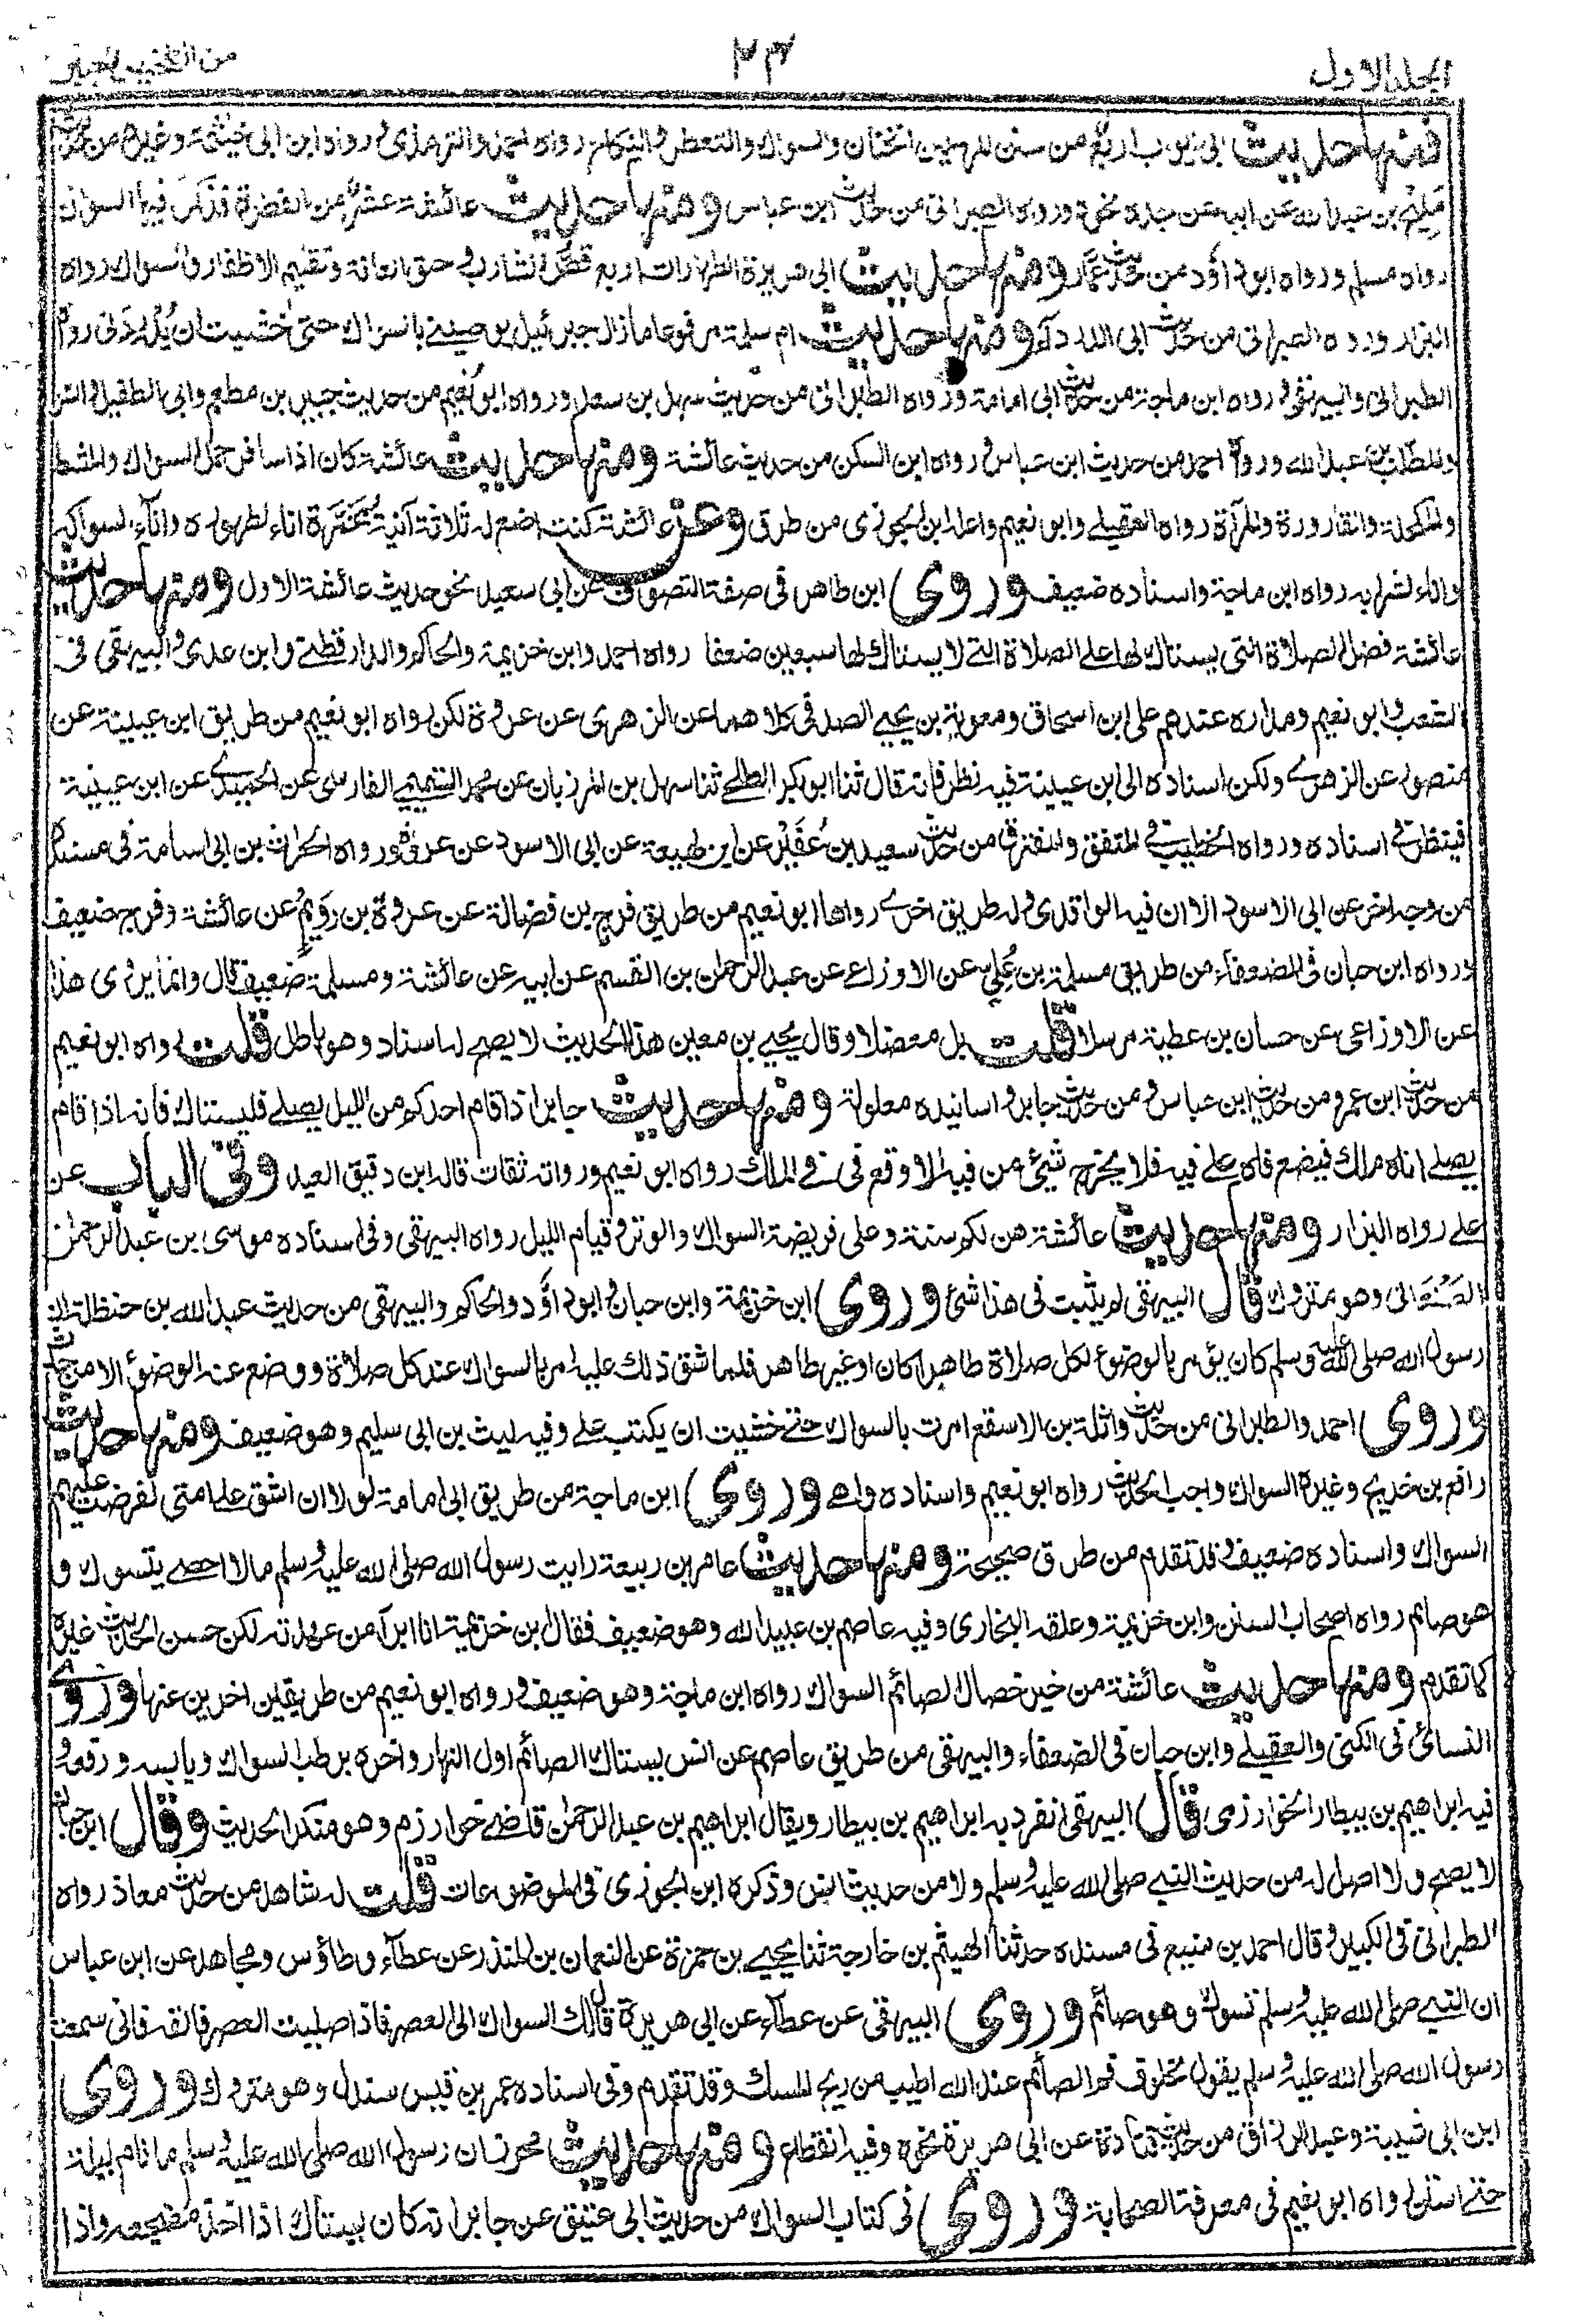 المجلد الاول
٢٣
من التلخيص الحبير
فمنها حديث ابى ايوب اربع من سنن المرسلين الختان والسواك والتعطر والنكاح رواه احمد والترمذى ورواه ابن ابى خيثمة وغيره من حديث
مليح بن عبد الله عن ابيه عن جده نحوه ورواه الطبرانى من حديث ابن عباس ومنها حديث عائشة عشر من الفطرة فذكر فيها السواك
رواه مسلم ورواه ابو داؤد من حديث عمار ومنها حديث ابى هريرة الطهارات اربع قص الشارب وحلق العانة وتقليم الاظفار والسواك رواه
البزار ورواه الطبرانى من حديث ابى الدرداء ومنها حديث ام سلمة مرفوعا مازال جبرئيل يوصينى بالسواك حتى خشيت ان يُدْرِدَنى رواه
الطبرانى والبيهقى ورواه ابن ماجة من حديث ابى امامة ورواه الطبرانى من حديث سهل بن سعد ورواه ابو نعيم من حديث جبير بن مطعم وابى الطفيل وانس
والمطلب بن عبد الله ورواه احمد من حديث ابن عباس ورواه ابن السكن من حديث عائشة ومنها حديث عائشة كان اذا سافر حمل السواك والمشط
والمكحلة والقارورة والمرآة رواه العقيلى وابو نعيم واعله ابن الجوزى من طرق وعن عائشة كنت اضع له ثلاثة آنية مُخَمَّرة اناء لطهوره واناء لسواكه
واناء لشرابه رواه ابن ماجة واسناده ضعيف وروى ابن طاهر فى صفة التصوف عن ابى سعيد نحو حديث عائشة الاول ومنها حديث
عائشة فضل الصلاة التى يستاك لها على الصلاة التى لا يستاك لها سبعين ضعفا رواه احمد وابن خزيمة والحاكم والدارقطنى وابن عدى والبيهقى فى
الشعب وابو نعيم ومداره عندهم على ابن اسحاق ومعوية بن يحيى الصدفى كلاهما عن الزهرى عن عروة لكن رواه ابو نعيم من طريق ابن عيينة عن
منصور عن الزهرى ولكن اسناده الى ابن عيينة فيه نظر فانه قال ثنا ابو بكر الطلحى ثنا سهل بن المرزبان عن محمد التميمى الفارسى عن الحميدى عن ابن عيينة
فينظر فى اسناده ورواه الخطيب فى المتفق والمفترق من حديث سعيد بن عُفَيْر عن ابن لهيعة عن ابى الاسود عن عروة ورواه الحارث بن ابى اسامة فى مسنده
من وجه اخر عن ابى الاسود الا ان فيه الواقدى وله طريق اخرى رواها ابو نعيم من طريق فرج بن فضالة عن عروة بن رويم عن عائشة وفرج ضعيف
ورواه ابن حبان فى الضعفاء من طريق مسلمة بن عُلَى عن الاوزاعى عن عبد الرحمن بن القسم عن ابيه عن عائشة ومسلمة ضعيف قال وانما يروى هذا
عن الاوزاعى عن حسان بن عطية مرسلا قلت بل معضلا وقال يحيى بن معين هذا الحديث لا يصح له اسناد وهو باطل قلت رواه ابو نعيم
من حديث ابن عمر ومن حديث ابن عباس ومن حديث جابر واسانيده معلولة ومنها حديث جابر اذا قام احدكم من الليل يصلى فليستاك فانه اذا قام
يصلى اتاه ملك فيضع فاه على فيه فلا يخرج شيئ من فيه الا وقع فى فى الملك رواه ابو نعيم ورواته ثقات قاله ابن دقيق العيد وفى الباب عن
على رواه البزار ومنها حديث عائشة هن لكم سنة وعلى فريضة السواك والوتر وقيام الليل رواه البيهقى وفى اسناده موسى بن عبد الرحمن
الصنعانى وهو متروك قال البيهقى لم يثبت فى هذا شئ وروى ابن خزيمة وابن حبان وابو داؤد والحاكم والبيهقى من حديث عبد الله بن حنظلة ان
رسول الله صلى الله عليه وسلم كان يؤمر بالوضوء لكل صلاة طاهرا كان او غير طاهر فلما شق ذلك عليه امر بالسواك عند كل صلاة ووضع عنه الوضوء الا من حدث
وروى احمد والطبرانى من حديث واثلة بن الاسقع امرت بالسواك حتى خشيت ان يكتب على وفيه ليث بن ابى سليم وهو ضعيف ومنها حديث
رافع بن خديج وغيره السواك واجب الحديث رواه ابو نعيم واسناده واهى وروى ابن ماجة من طريق ابى امامة لولا ان اشق على امتى لفرضت عليهم
السواك واسناده ضعيف وقد تقدم من طرق صحيحة ومنها حديث عامر بن ربيعة رايت رسول الله صلى الله عليه وسلم مالا احصى يتسوك و
هو صائم رواه اصحاب السنن وابن خزيمة وعلقه البخارى وفيه عاصم بن عبيد الله وهو ضعيف فقال ابن خزيمة انا ابرأ من عهدته لكن حسن الحديث غيره
كما تقدم ومنها حديث عائشة من خير خصال الصائم السواك رواه ابن ماجة وهو ضعيف ورواه ابو نعيم من طريقين اخرين عنها وروى
النسائى فى الكنى والعقيلى وابن حبان فى الضعفاء والبيهقى من طريق عاصم عن انس يستاك الصائم اول النهار واخره برطب السواك ويابسه ورفعه و
فيه ابراهيم بن بيطار الخوارزمى قال البيهقى انفرد به ابراهيم بن بيطار ويقال ابراهيم بن عبد الرحمن قاضى خوارزم وهو منكر الحديث وقال ابن حبان
لا يصح ولا اصل له من حديث النبى صلى الله عليه وسلم ولا من حديث انس وذكره ابن الجوزى فى الموضوعات قلت له شاهد من حديث معاذ رواه
الطبرانى فى الكبير وقال احمد بن منيع فى مسنده حدثنا الهيثم بن خارجة ثنا يحيى بن حمزة عن النعمان بن المنذر عن عطاء وطاؤس ومجاهد عن ابن عباس
ان النبى صلى الله عليه وسلم تسوك وهو صائم وروى البيهقى عن عطاء عن ابى هريرة قال لك السواك الى العصر فاذا صليت العصر فالقه فانى سمعت
رسول الله صلى الله عليه وسلم يقول لخلوف فم الصائم عند الله اطيب من ريح المسك وقد تقدم وفى اسناده عمر بن قيس سندل وهو متروك وروى
ابن ابى شيبة وعبد الرزاق من حديث قتادة عن ابى هريرة نحوه وفيه انقطاع ومنها حديث محرز ان رسول الله صلى الله عليه وسلم ما نام ليلة
حتى استن رواه ابو نعيم فى معرفة الصحابة وروى فى كتاب السواك من حديث ابى عتيق عن جابر انه كان يستاك اذا اخذ مضجعه واذا